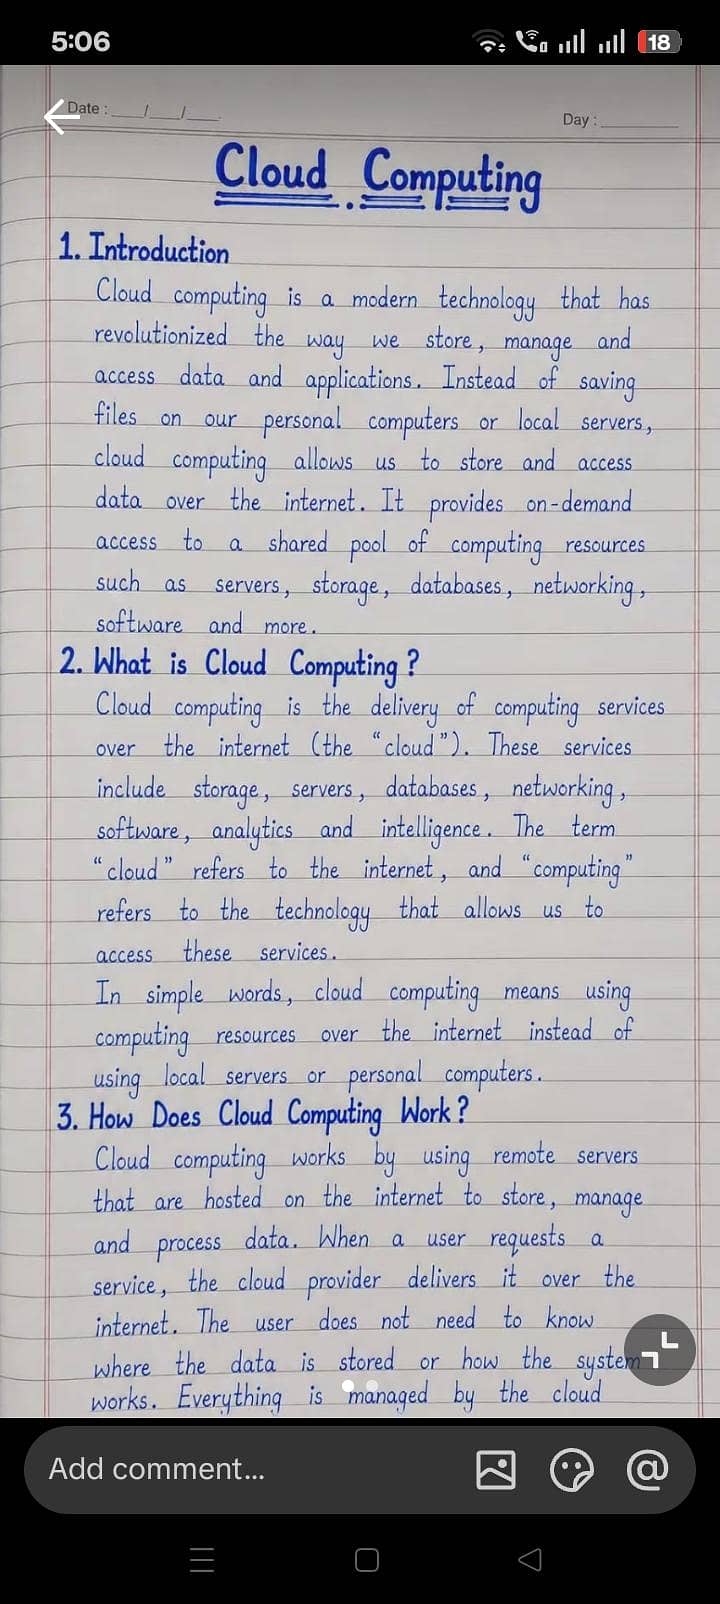 5:06
18
Date : ___/___/___.
Day : ________
Cloud Computing
1. Introduction
Cloud computing is a modern technology that has
revolutionized the way we store, manage and
access data and applications. Instead of saving
files on our personal computers or local servers,
cloud computing allows us to store and access
data over the internet. It provides on-demand
access to a shared pool of computing resources
such as servers, storage, databases, networking,
software and more.
2. What is Cloud Computing?
Cloud computing is the delivery of computing services
over the internet (the “cloud”). These services
include storage, servers, databases, networking,
software, analytics and intelligence. The term
“cloud” refers to the internet, and “computing”
refers to the technology that allows us to
access these services.
In simple words, cloud computing means using
computing resources over the internet instead of
using local servers or personal computers.
3. How Does Cloud Computing Work?
Cloud computing works by using remote servers
that are hosted on the internet to store, manage
and process data. When a user requests a
service, the cloud provider delivers it over the
internet. The user does not need to know
where the data is stored or how the system
works. Everything is managed by the cloud
Add comment...